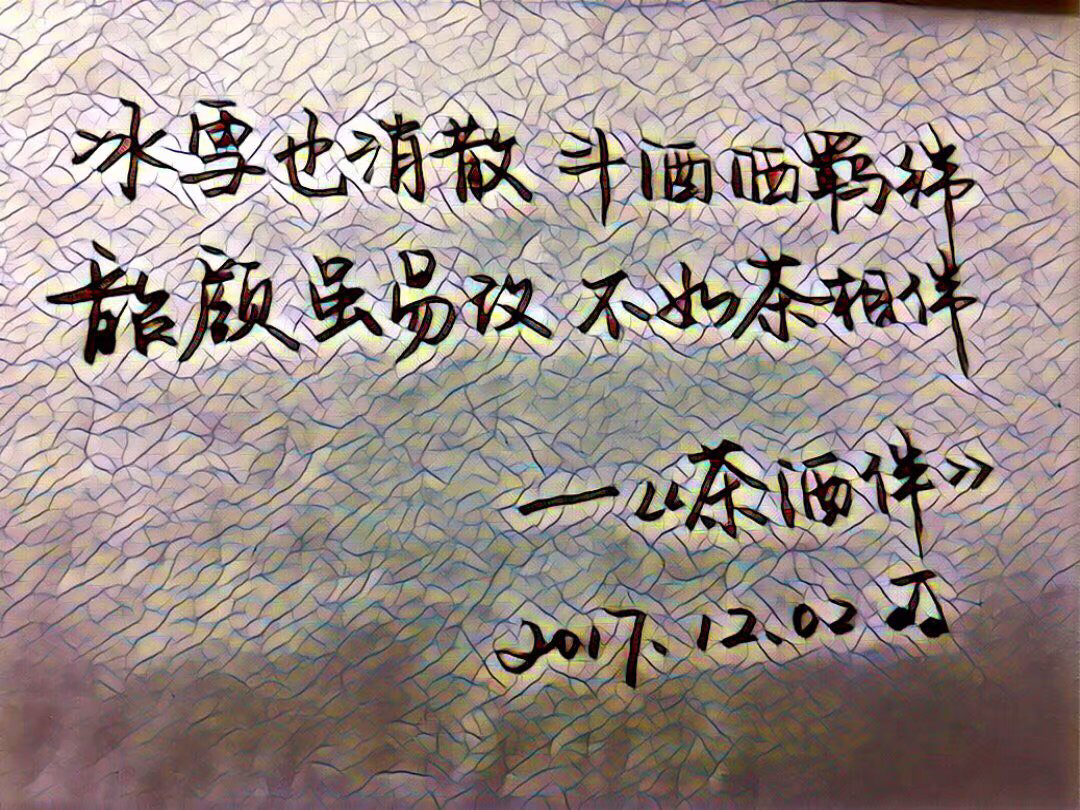 冰雪也消散 斗酒洒羁绊
韶颜虽易改 不如茶相伴
—《茶酒伴》
2017.12.02